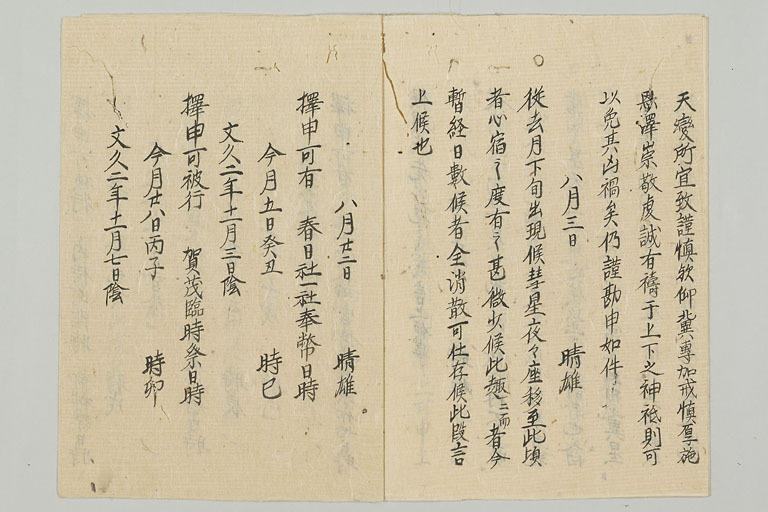 天變所宜致謹慎欽仰冀專加戒慎厚施
恩澤崇敬虔誠有禱于上下之神祇則可
以免其凶禍矣仍謹勘申如件
八月三日　晴雄
從去月下旬出現候彗星夜々座移至此頃
者心宿之度有之甚微少候此趣ニ而者今
暫経日數候者全消散可仕存候此段言
上候也
八月廿二日　晴雄
擇申可有　春日社一社奉幣日時
今月五日癸丑　時巳
文久二年十一月三日陰
擇申可被行　賀茂臨時祭日時
今月廿八日丙子　時卯
文久二年十一月七日陰